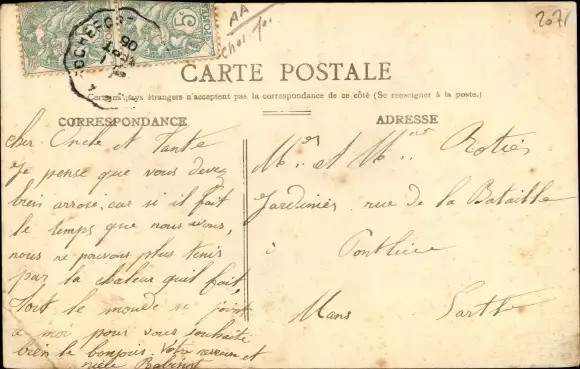 2071
AA
cher
ROCHEFORT
06
5
POSTES
CARTE POSTALE
Certains pays étrangers n'acceptent pas la correspondance de ce côté (Se renseigner à la poste.)
CORRESPONDANCE
cher Oncle et Tante
Je pense que vous devez
bien arrosé, car si il fait
le temps que nous avons,
nous ne pouvons plus tenir
par la chaleur qu'il fait,
tout le monde se joint
a moi pour vous souhaité
bien le bonjour. Votre neveu et
nièce
ADRESSE
Mr et Mme Rotier
Jardinier rue de la Bataille
à Pontlieue
Mans Sarthe